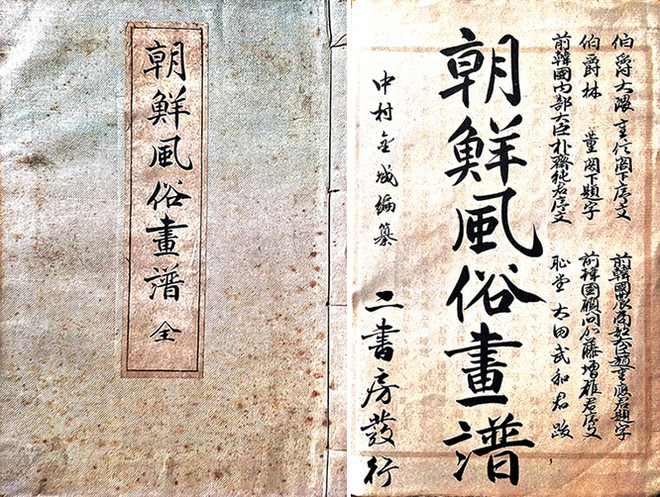 朝鮮風俗畫譜 全
伯爵大隈重信閣下序文
伯爵林 董閣下題字
前韓國內部大臣朴齊純君序文
前韓國農商部大臣趙重應君題字
前韓国顧問加藤增雄君序文
恥堂 太田武和君 跋
朝鮮風俗畫譜
中村金城編纂
二書房發行